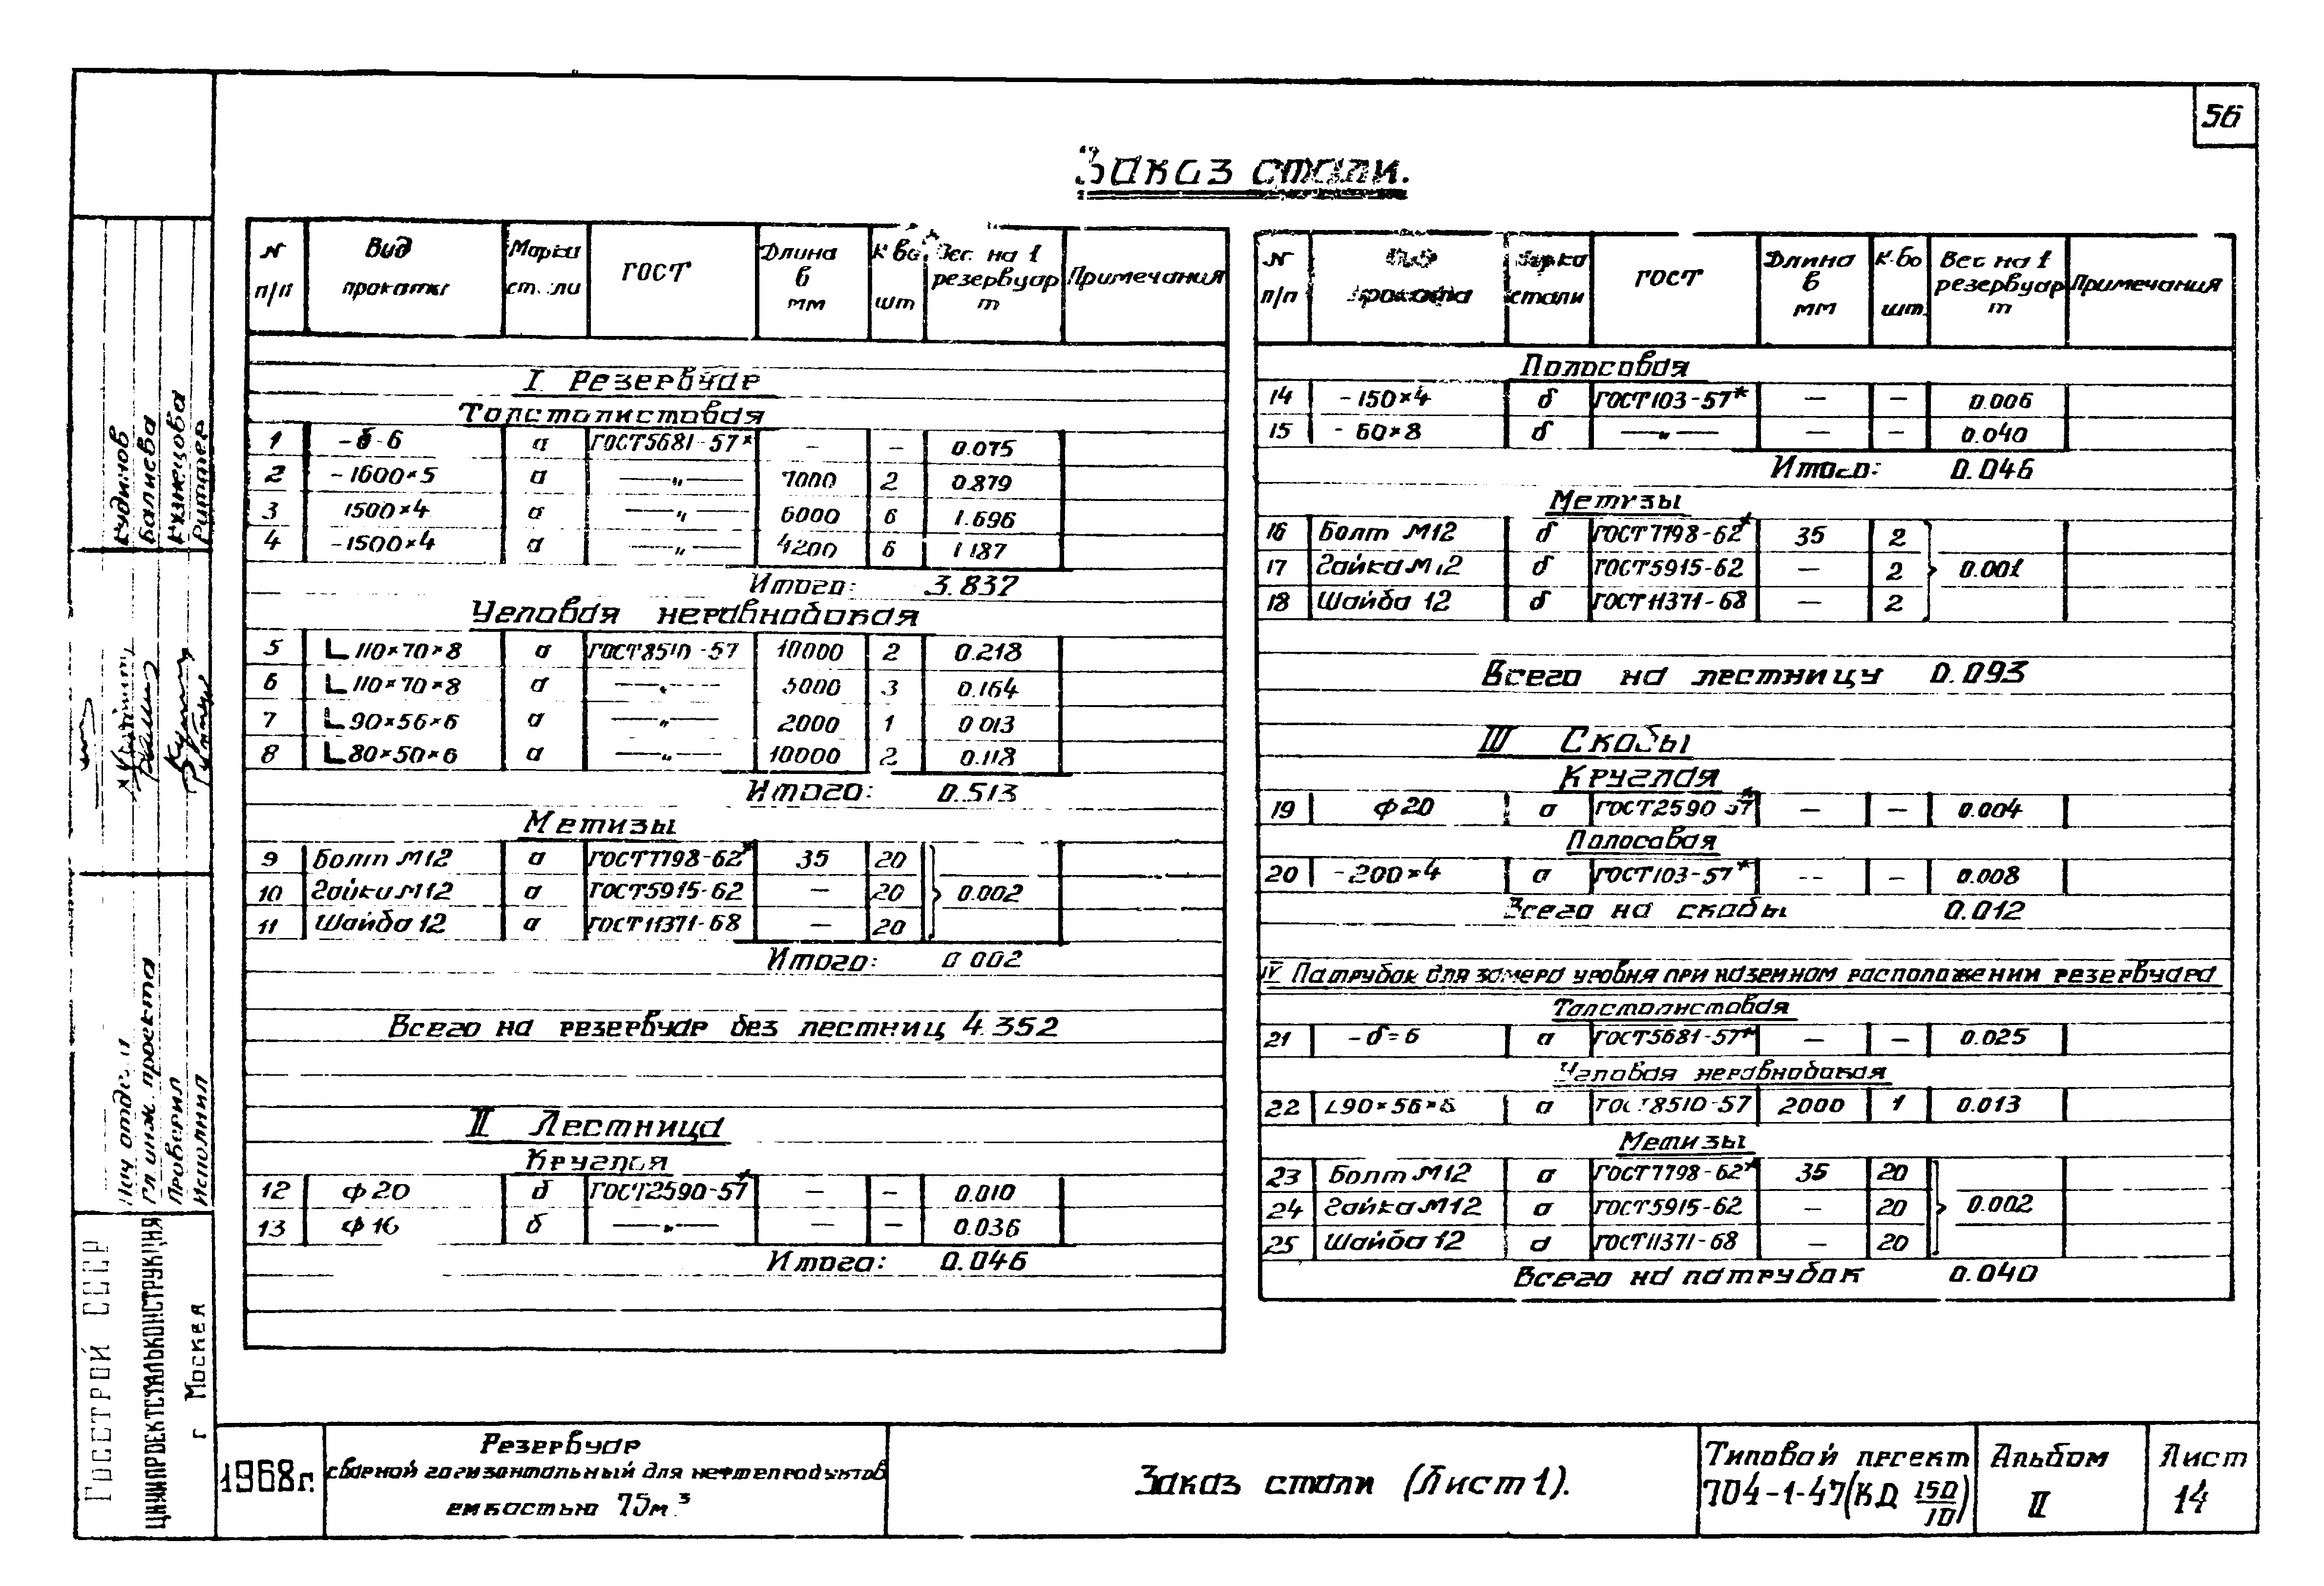 56
Заказ стали.
N п/п | Вид прокатки | Марка ст..ли | ГОСТ | Длина в мм | К-во шт | Вес на 1 резервуар т | Примечания
I Резервуар
Толстолистовая
1 | -δ-6 | а | ГОСТ5681-57* | — | — | 0.075
2 | -1600×5 | а | —„— | 7000 | 2 | 0.879
3 | 1500×4 | а | —„— | 6000 | 6 | 1.696
4 | -1500×4 | а | —„— | 4200 | 6 | 1 187
Итого: 3.837
Угловая неравнобокая
5 | L 110×70×8 | а | ГОСТ8510-57 | 10000 | 2 | 0.218
6 | L 110×70×8 | а | —„— | 5000 | 3 | 0.164
7 | L 90×56×6 | а | —„— | 2000 | 1 | 0 013
8 | L 80×50×6 | а | —„— | 10000 | 2 | 0.118
Итого: 0.513
Метизы
9 | Болт М12 | а | ГОСТ7798-62* | 35 | 20
10 | Гайка М12 | а | ГОСТ5915-62 | — | 20 | 0.002
11 | Шайба 12 | а | ГОСТ11371-68 | — | 20
Итого: 0 002
Всего на резервуар без лестниц 4.352
II Лестница
Круглая
12 | ф 20 | б | ГОСТ2590-57* | — | — | 0.010
13 | ф 16 | б | —„— | — | — | 0.036
Итого: 0.046
N п/п | Вид проката | Марка стали | ГОСТ | Длина в мм | К-во шт. | Вес на 1 резервуар т | Примечания
Полосовая
14 | -150×4 | б | ГОСТ103-57* | — | — | 0.006
15 | - 60×8 | б | —„— | — | — | 0.040
Итого: 0.046
Метизы
16 | Болт М12 | б | ГОСТ7798-62* | 35 | 2
17 | Гайка М12 | б | ГОСТ5915-62 | — | 2 | 0.001
18 | Шайба 12 | б | ГОСТ11371-68 | — | 2
Всего на лестницу 0.093
III Скобы
Круглая
19 | ф 20 | а | ГОСТ2590 57* | — | — | 0.004
Полосовая
20 | -200×4 | а | ГОСТ103-57* | -- | — | 0.008
Всего на скобы 0.012
IV Патрубок для замера уровня при наземном расположении резервуара
Толстолистовая
21 | -δ=6 | а | ГОСТ5681-57* | — | — | 0.025
Угловая неравнобокая
22 | L90×56×6 | а | ГОСТ8510-57 | 2000 | 1 | 0.013
Метизы
23 | Болт М12 | а | ГОСТ7798-62* | 35 | 20
24 | Гайка М12 | а | ГОСТ5915-62 | — | 20 | 0.002
25 | Шайба 12 | а | ГОСТ11371-68 | — | 20
Всего на патрубок 0.040
Кудинов
Балиева
Кузнецова
Нач отдела
Гл инж. проекта
Проверил
Исполнил
ГОССТРОЙ СССР
ЦНИИПРОЕКТСТАЛЬКОНСТРУКЦИЯ
г Москва
1968г.
Резервуар
сборной горизонтальный для нефтепродуктов
емкостью 75м.³
Заказ стали (Лист 1).
Типовой проект
704-1-47(КД 150/10)
Альбом
II
Лист
14